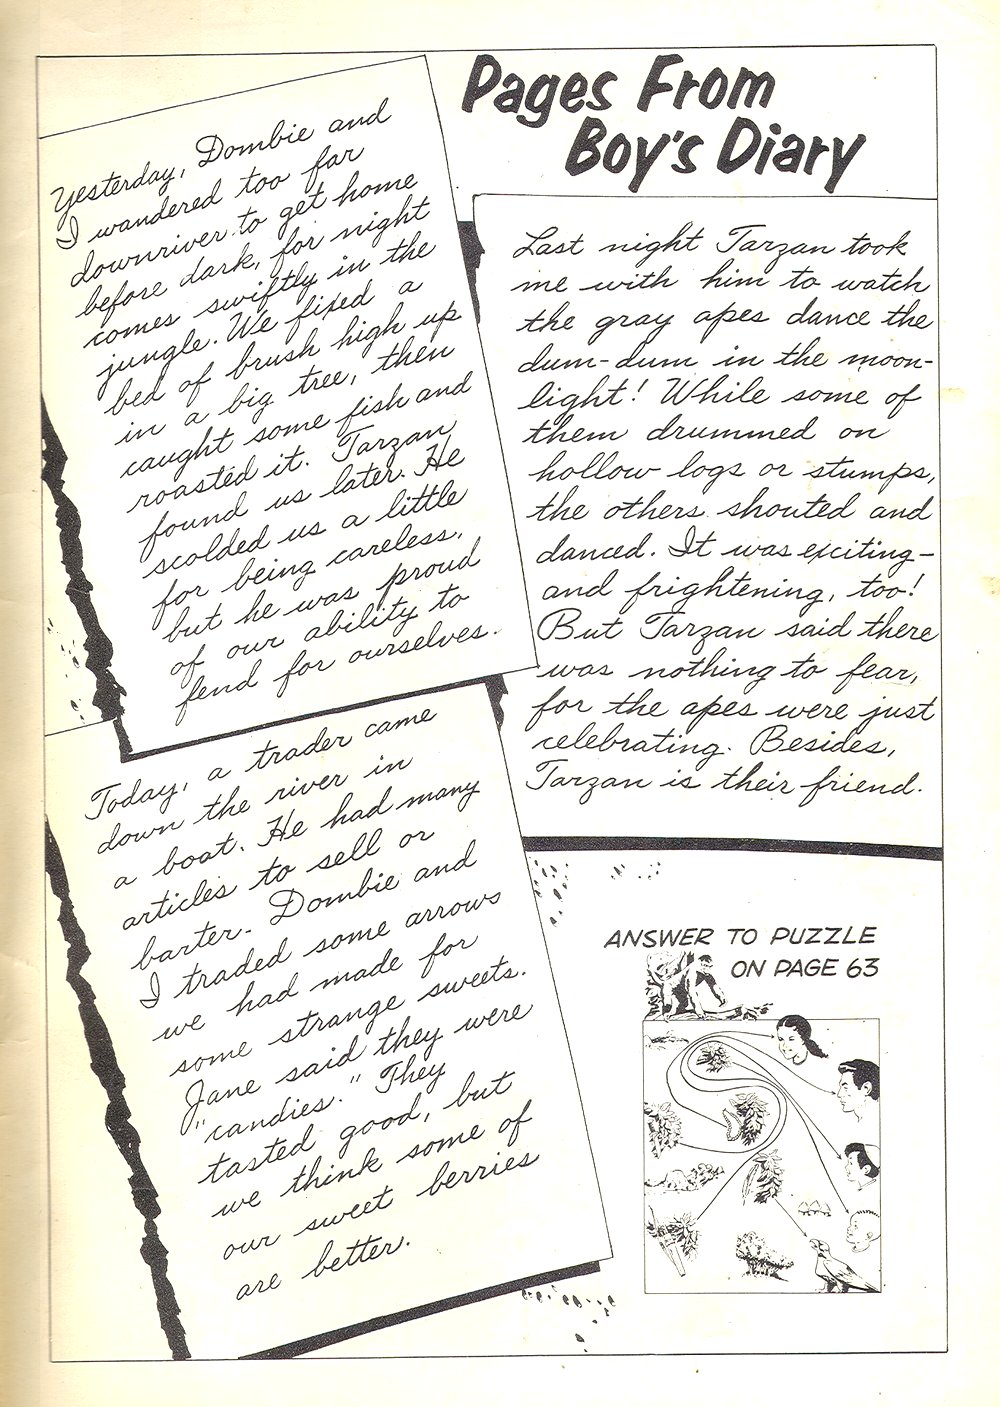 Pages From
Boy's Diary
Yesterday, Dombie and
I wandered too far
downriver to get home
before dark, for night
comes swiftly in the
jungle. We fixed a
bed of brush high up
in a big tree, then
caught some fish and
roasted it. Tarzan
found us later. He
scolded us a little
for being careless,
but he was proud
of our ability to
fend for ourselves.
Last night Tarzan took
me with him to watch
the gray apes dance the
dum-dum in the moon-
light! While some of
them drummed on
hollow logs or stumps,
the others shouted and
danced. It was exciting—
and frightening, too!
But Tarzan said there
was nothing to fear,
for the apes were just
celebrating. Besides,
Tarzan is their friend.
Today, a trader came
down the river in
a boat. He had many
articles to sell or
barter. Dombie and
I traded some arrows
we had made for
some strange sweets.
Jane said they were
"candies." They
tasted good, but
we think some of
our sweet berries
are better.
ANSWER TO PUZZLE
ON PAGE 63